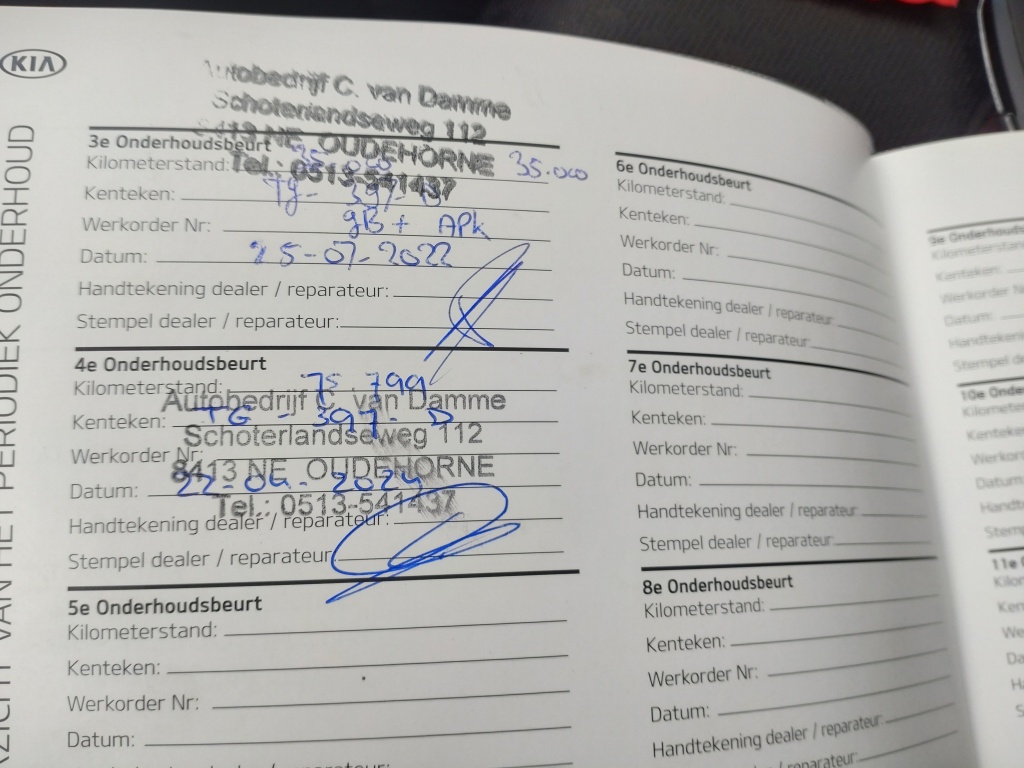 KIA
ZICHT VAN HET PERIODIEK ONDERHOUD
Autobedrijf C. van Damme
Schoterlandseweg 112
8413 NE OUDEHORNE
Tel.: 0513-541437
3e Onderhoudsbeurt
Kilometerstand: 35.000 35.000
Kenteken: TG-397-D
Werkorder Nr: gB + APK
Datum: 25-07-2022
Handtekening dealer / reparateur:
Stempel dealer / reparateur:
4e Onderhoudsbeurt
Kilometerstand: 75.799
Autobedrijf C. van Damme
Kenteken: TG-397-D
Schoterlandseweg 112
Werkorder Nr:
8413 NE OUDEHORNE
Datum: 22-04-2024
Tel.: 0513-541437
Handtekening dealer / reparateur:
Stempel dealer / reparateur:
5e Onderhoudsbeurt
Kilometerstand:
Kenteken:
Werkorder Nr:
Datum:
6e Onderhoudsbeurt
Kilometerstand:
Kenteken:
Werkorder Nr:
Datum:
Handtekening dealer / reparateur:
Stempel dealer / reparateur:
7e Onderhoudsbeurt
Kilometerstand:
Kenteken:
Werkorder Nr:
Datum:
Handtekening dealer / reparateur:
Stempel dealer / reparateur:
8e Onderhoudsbeurt
Kilometerstand:
Kenteken:
Werkorder Nr:
Datum:
Handtekening dealer / reparateur:
9e Onderhouds
Kilometerstan
Kenteken:
Werkorder N
Datum:
Handtekenin
Stempel de
10e Onde
Kilometer
Kenteke
Werkor
Datum
Handt
Stemp
11e
Kilo
Ken
We
Da
Ha
S